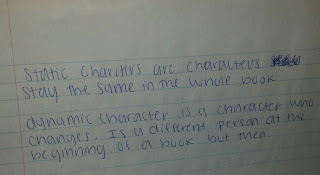 Static Charcters are characters
Stay the same in the whole book
dynamic character is a character who
changes. Is a different person at the
beginning of a book but then